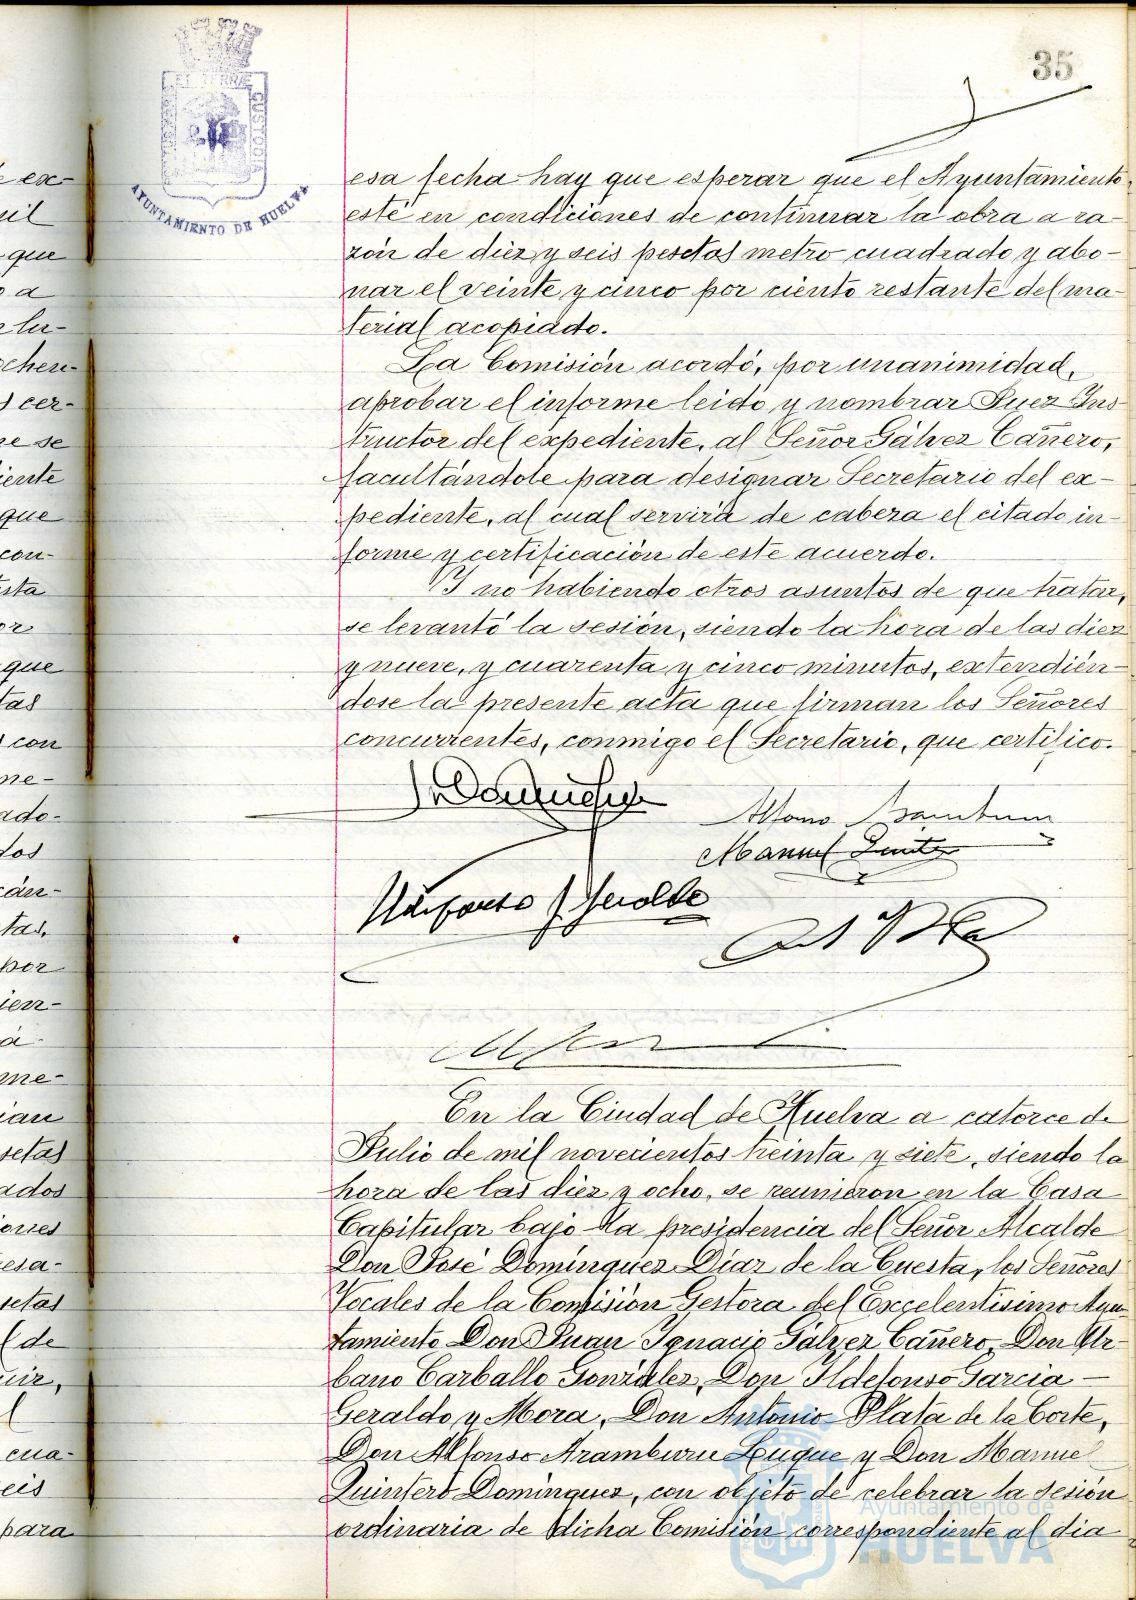 35
ET TERRÆ CUSTODIA
AYUNTAMIENTO DE HUELVA
esa fecha hay que esperar que el Ayuntamiento
esté en condiciones de continuar la obra a ra-
zón de diez y seis pesetas metro cuadrado y abo-
nar el veinte y cinco por ciento restante del ma-
terial acopiado.
La Comisión acordó, por unanimidad,
aprobar el informe leido y nombrar Juez Ins-
tructor del expediente, al Señor Gálvez Cañero,
facultándole para designar Secretario del ex-
pediente, al cual servirá de cabeza el citado in-
forme y certificación de este acuerdo.
Y no habiendo otros asuntos de que tratar,
se levantó la sesión, siendo la hora de las diez
y nueve, y cuarenta y cinco minutos, extendién-
dose la presente acta que firman los Señores
concurrentes, conmigo el Secretario, que certifico.
Alfonso Aramburu
Manuel Quintero
Ildefonso G. Geraldo
Ant Plata
En la Ciudad de Huelva a catorce de
Julio de mil novecientos treinta y siete, siendo la
hora de las diez y ocho, se reunieron en la Casa
Capitular bajo la presidencia del Señor Alcalde
Don José Domínguez Díaz de la Cuesta, los Señores
Vocales de la Comisión Gestora del Excelentísimo Ayun-
tamiento Don Juan Ignacio Gálvez Cañero, Don Ur-
bano Carballo González, Don Ildefonso Garcia-
Geraldo y Mora, Don Antonio Plata de la Corte,
Don Alfonso Aramburu Luque y Don Manuel
Quintero Domínguez, con objeto de celebrar la sesión
ordinaria de dicha Comisión correspondiente al dia
Ayuntamiento de
HUELVA